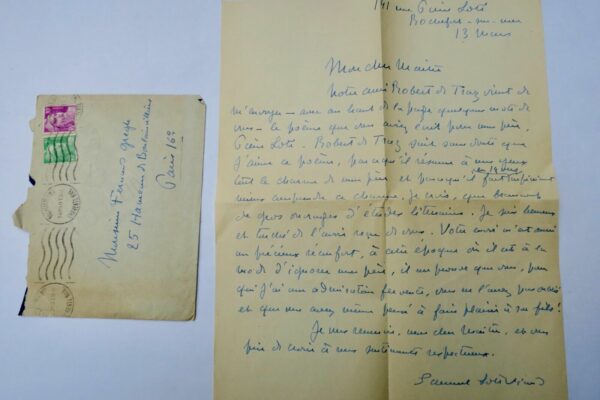 Monsieur Fernand Gregh
25 Hameau de Boulainvilliers
Paris 16e
141 rue Pierre Loti
Rochefort-sur-mer
13 Mars
Mon cher Maître
Notre ami Robert de Traz vient de
m'envoyer – avec au haut de la page quelques mots de
vous – le poème que vous aviez écrit pour mon père,
Pierre Loti. Robert de Traz sait sans doute que
j'aime ce poème, parce qu'il résume à mes yeux
en 14 vers
tout le charme de mon père et parce qu'il fait
mieux comprendre ce charme, je crois, que beaucoup
de gros ouvrages d'études littéraires. Je suis heureux
et touché de l'avoir reçu de vous. Votre envoi m'est aussi
un précieux réconfort, à cette époque où il est à la
mode d'ignorer mon père, il me prouve que vous, pour
qui j'ai une admiration fervente, vous ne l'avez pas oublié
et que vous avez même pensé à faire plaisir à son fils!
Je vous remercie, mon cher Maître, et vous
prie de croire à mes sentiments respectueux.
Samuel Loti Viaud